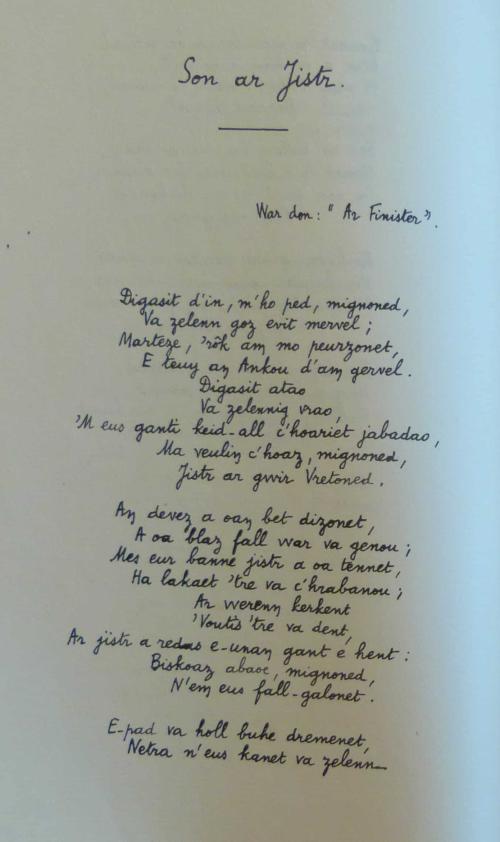 Son ar Jistr.
War don: "Ar Finister".
Digasit d'in, m'ho ped, mignoned,
Va zelenn goz evit mervel;
Marteze, 'rôk am mo peurzonet,
E teuy an Ankou d'am gervel.
Digasit atao
Va zelennig vrao,
'M eus ganti keid-all c'hoariet jabadao,
Ma veulin c'hoaz, mignoned,
Jistr ar gwir Vretoned.
An devez a oan bet dizonet,
A oa blaz fall war va genou;
Mes eur banne jistr a oa tennet,
Ha lakaet 'tre va c'hrabanou;
Ar werenn kerkent
'Voutis 'tre va dent,
Ar jistr a redas e-unan gant e hent:
Biskoaz abaoe, mignoned,
N'em eus fall-galonet.
E-pad va holl buhe dremenet,
Netra n'eus kanet va zelenn